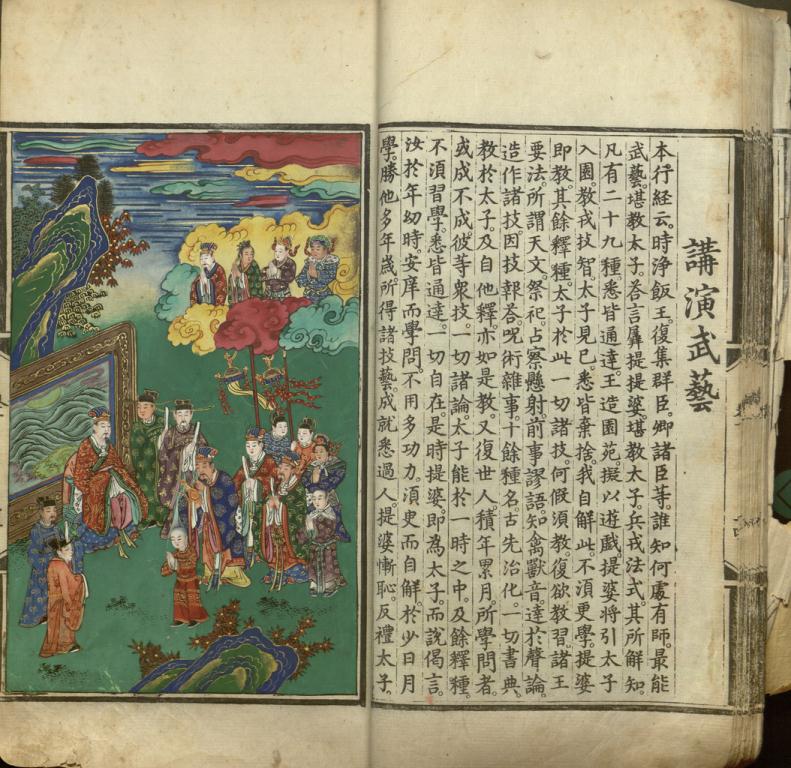 講演武藝
本行経云。時浄飯王復集群臣。卿諸臣䒭。誰知何處有師。最能
武藝。堪教太子。荅言羼提提婆。堪教太子。兵戎法式。其所解知。
凡有二十九種。悉皆通達。王造園苑。擬以遊戱。提婆將引太子
入園。教戎技智。太子見已。悉皆棄捨。我自解此。不湏更學。提婆
即教其餘釋種。太子於此一切諸技。何假湏教。復欲教習。諸王
要法。所謂天文。祭祀。占察。懸射前事。謬語。知禽獸音。達於聲論。
造作諸技。因技報荅。呪術雜事。十餘種名。古先治化。一切書典。
教於太子。及自他釋。亦如是教。又復世人。積年累月。所學問者。
或成不成。彼等衆技。一切諸論。太子能於一時之中。及餘釋種。
不湏習學。悉皆通達。一切自在。是時提婆。即為太子。而說偈言。
汝於年㓜時。安庠而學問。不用多功力。湏臾而自解。於少日月
學。勝他多年嵗。所得諸技藝。成就悉過人。提婆慚恥。反禮太子。